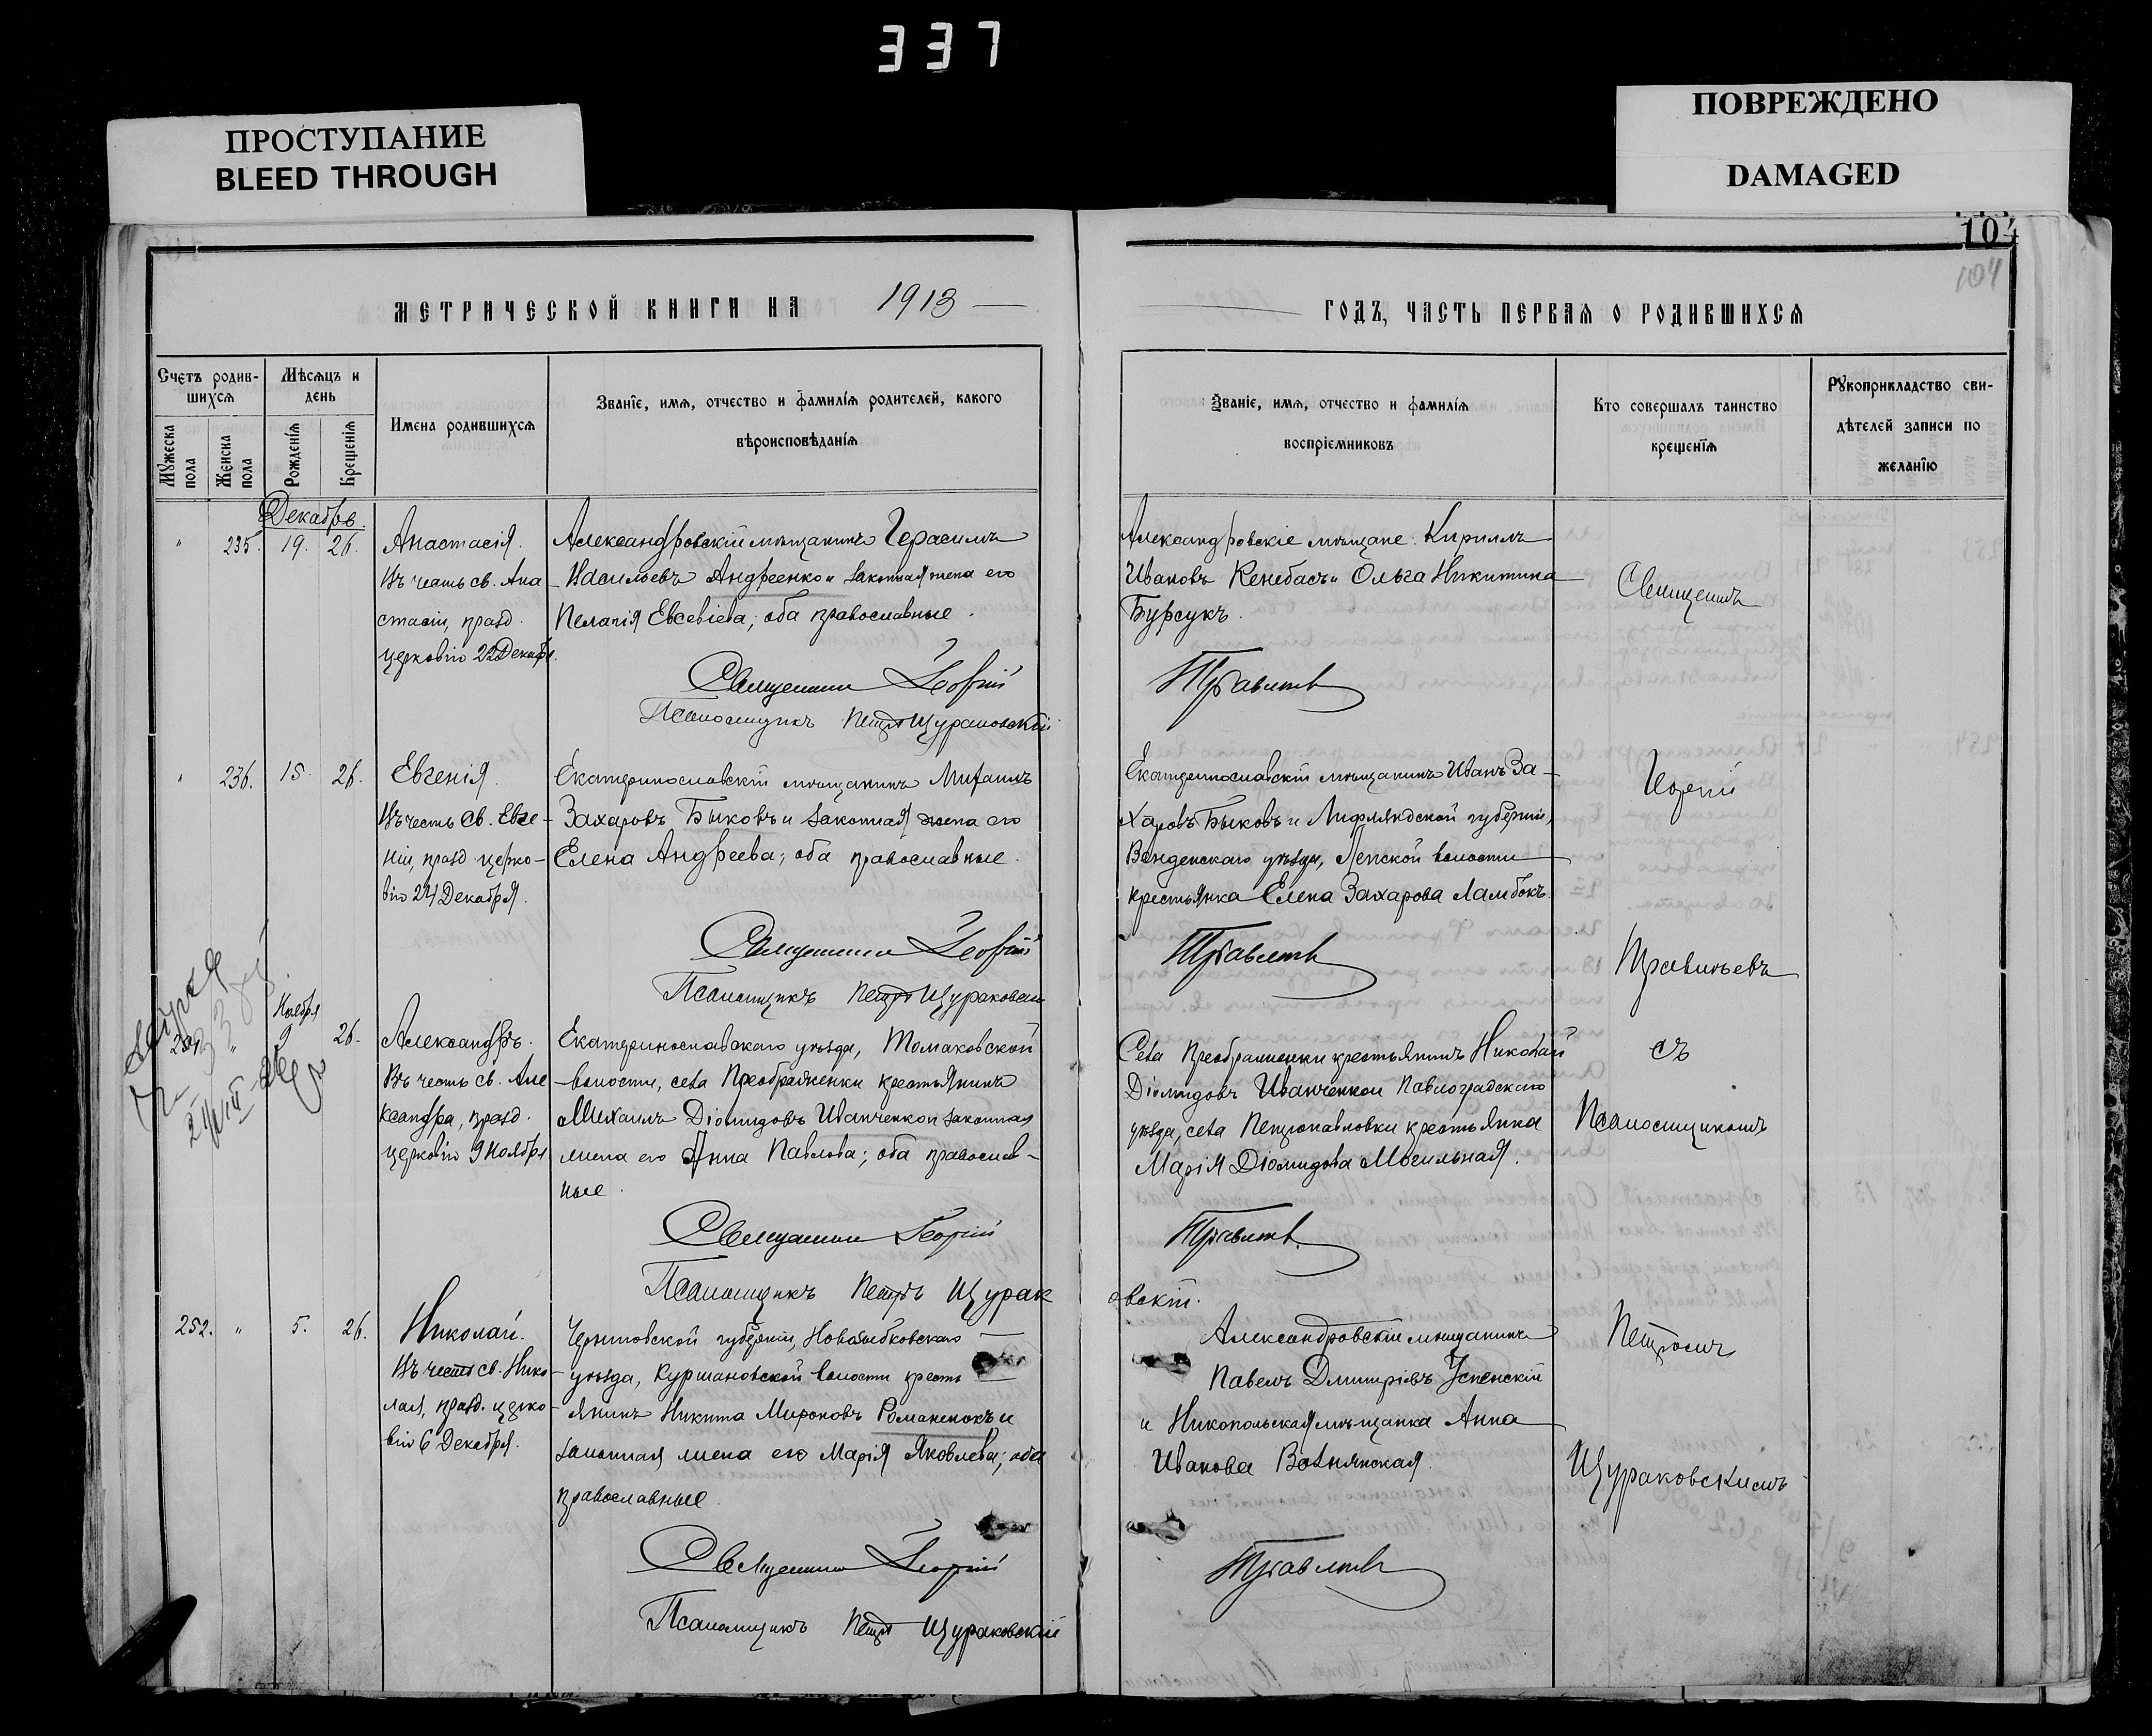 337
ПРОСТУПАНИЕ
BLEED THROUGH
ПОВРЕЖДЕНО
DAMAGED
104
104
МЕТРИЧЕСКОЙ КНИГИ НА 1913
ГОДЪ, ЧАСТЬ ПЕРВАЯ О РОДИВШИХСЯ
Счетъ родив-
шихся
Мужеска пола
Женска пола
Мѣсяцъ и
день
Рожденія
Крещенія
Имена родившихся
Званіе, имя, отчество и фамилія родителей, какого
вѣроисповѣданія
Званіе, имя, отчество и фамилія
воспріемниковъ
Кто совершалъ таинство
крещенія
Рукоприкладство сви-
дѣтелей записи по
желанію
Декабрь.
" 235. 19. 26.
Анастасія.
Въ честь св. Ана
стасіи, празд.
церковію 22 Декабр.
Александровскій мѣщанинъ Герасимъ
Васильевъ Андреенко и законная жена его
Пелагія Евсевіева; оба православные.
Священникъ Георгій
Псаломщикъ Петръ Щураковскій
Александровскіе мѣщане: Кириллъ
Ивановъ Кенебасъ и Ольга Никитина
Бурсукъ.
Священникъ
" 236. 15. 26.
Евгенія.
Въ честь св. Евге-
ніи, празд. церко-
вію 24 Декабря.
Екатеринославскій мѣщанинъ Михаилъ
Захаровъ Быковъ и законная жена его
Елена Андреева; оба православные.
Священникъ Георгій
Псаломщикъ Петръ Щураковскій
Екатеринославскій мѣщанинъ Иванъ За-
харовъ Быковъ и Лифляндской губерніи,
Венденскаго уѣзда, Лепской волости
крестьянка Елена Захарова Ламбокъ.
Георгій
Ноября
9 26.
Александръ.
Въ честь св. Але
ксандра, празд.
церковію 9 Ноября
Екатеринославскаго уѣзда, Томаковской
волости, села Преображенки крестьянинъ
Михаилъ Діомидовъ Иванченко и законная
жена его Анна Павлова; оба православ-
ные.
Священникъ Георгій
Псаломщикъ Петръ Щурак
овскій.
Села Преображенки крестьянинъ Николай
Діомидовъ Иванченко и Павлоградскаго
уѣзда, села Петропавловки крестьянка
Марія Діомидова Могильная.
съ
Псаломщикомъ
252. " 5. 26.
Николай.
Въ честь св. Нико-
лая, празд. церко-
вію 6 Декабря.
Черниговской губерніи, Новозыбковскаго
уѣзда, Куршановской волости кресть
янинъ Никита Мироновъ Романенокъ и
законная жена его Марія Яковлева; оба
православные.
Священникъ Георгій
Псаломщикъ Петръ Щураковскій
Александровскій мѣщанинъ
Павелъ Дмитріевъ Успенскій
и Никопольская мѣщанка Анна
Иванова
Петромъ
Щураковскимъ